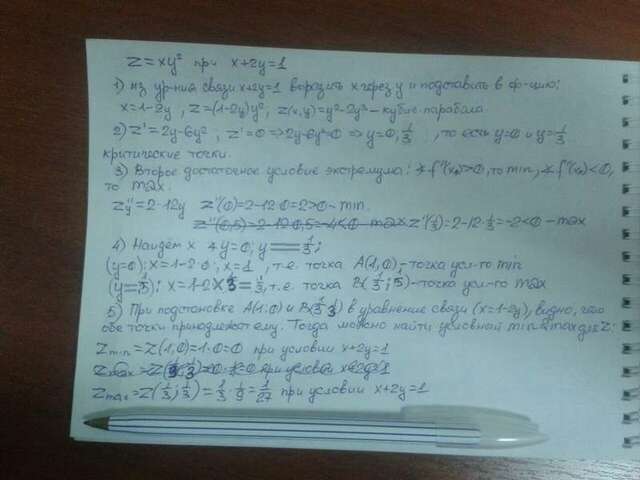 z=xy² при x+2y=1
1) из ур-ния связи x+2y=1 выразить x через y и подставить в ф-цию:
x=1-2y, z=(1-2y)y²; z(x,y)=y²-2y³ - кубич. парабола
2) z'=2y-6y²; z'=0 => 2y-6y²=0 => y=0, 1/3, то есть y=0 и y=1/3
критические точки.
3) Второе достаточное условие экстремума: f''(x₀)>0, то min, f''(x₀)<0,
то max.
z''y=2-12y z''(0)=2-12·0=2>0 - min.
z''(0,5)=2-12·0,5=-4<0 - max z''(1/3)=2-12·1/3=-2<0 - max
4) Найдём x к y=0; y=1/3;
(y=0): x=1-2·0; x=1, т.е. точка A(1,0) - точка усл-го min
(y=1/3): x=1-2·1/3=1/3, т.е. точка B(1/3;1/3) - точка усл-го max
5) При подстановке A(1;0) и B(1/3;1/3) в уравнение связи (x=1-2y), видно, что
обе точки принадлежат ему. Тогда можно найти условный min и max для z:
z min=z(1,0)=1·0=0 при условии x+2y=1
z max=z(1/3;1/3)=1/3·1/9=1/27 при условии x+2y=1